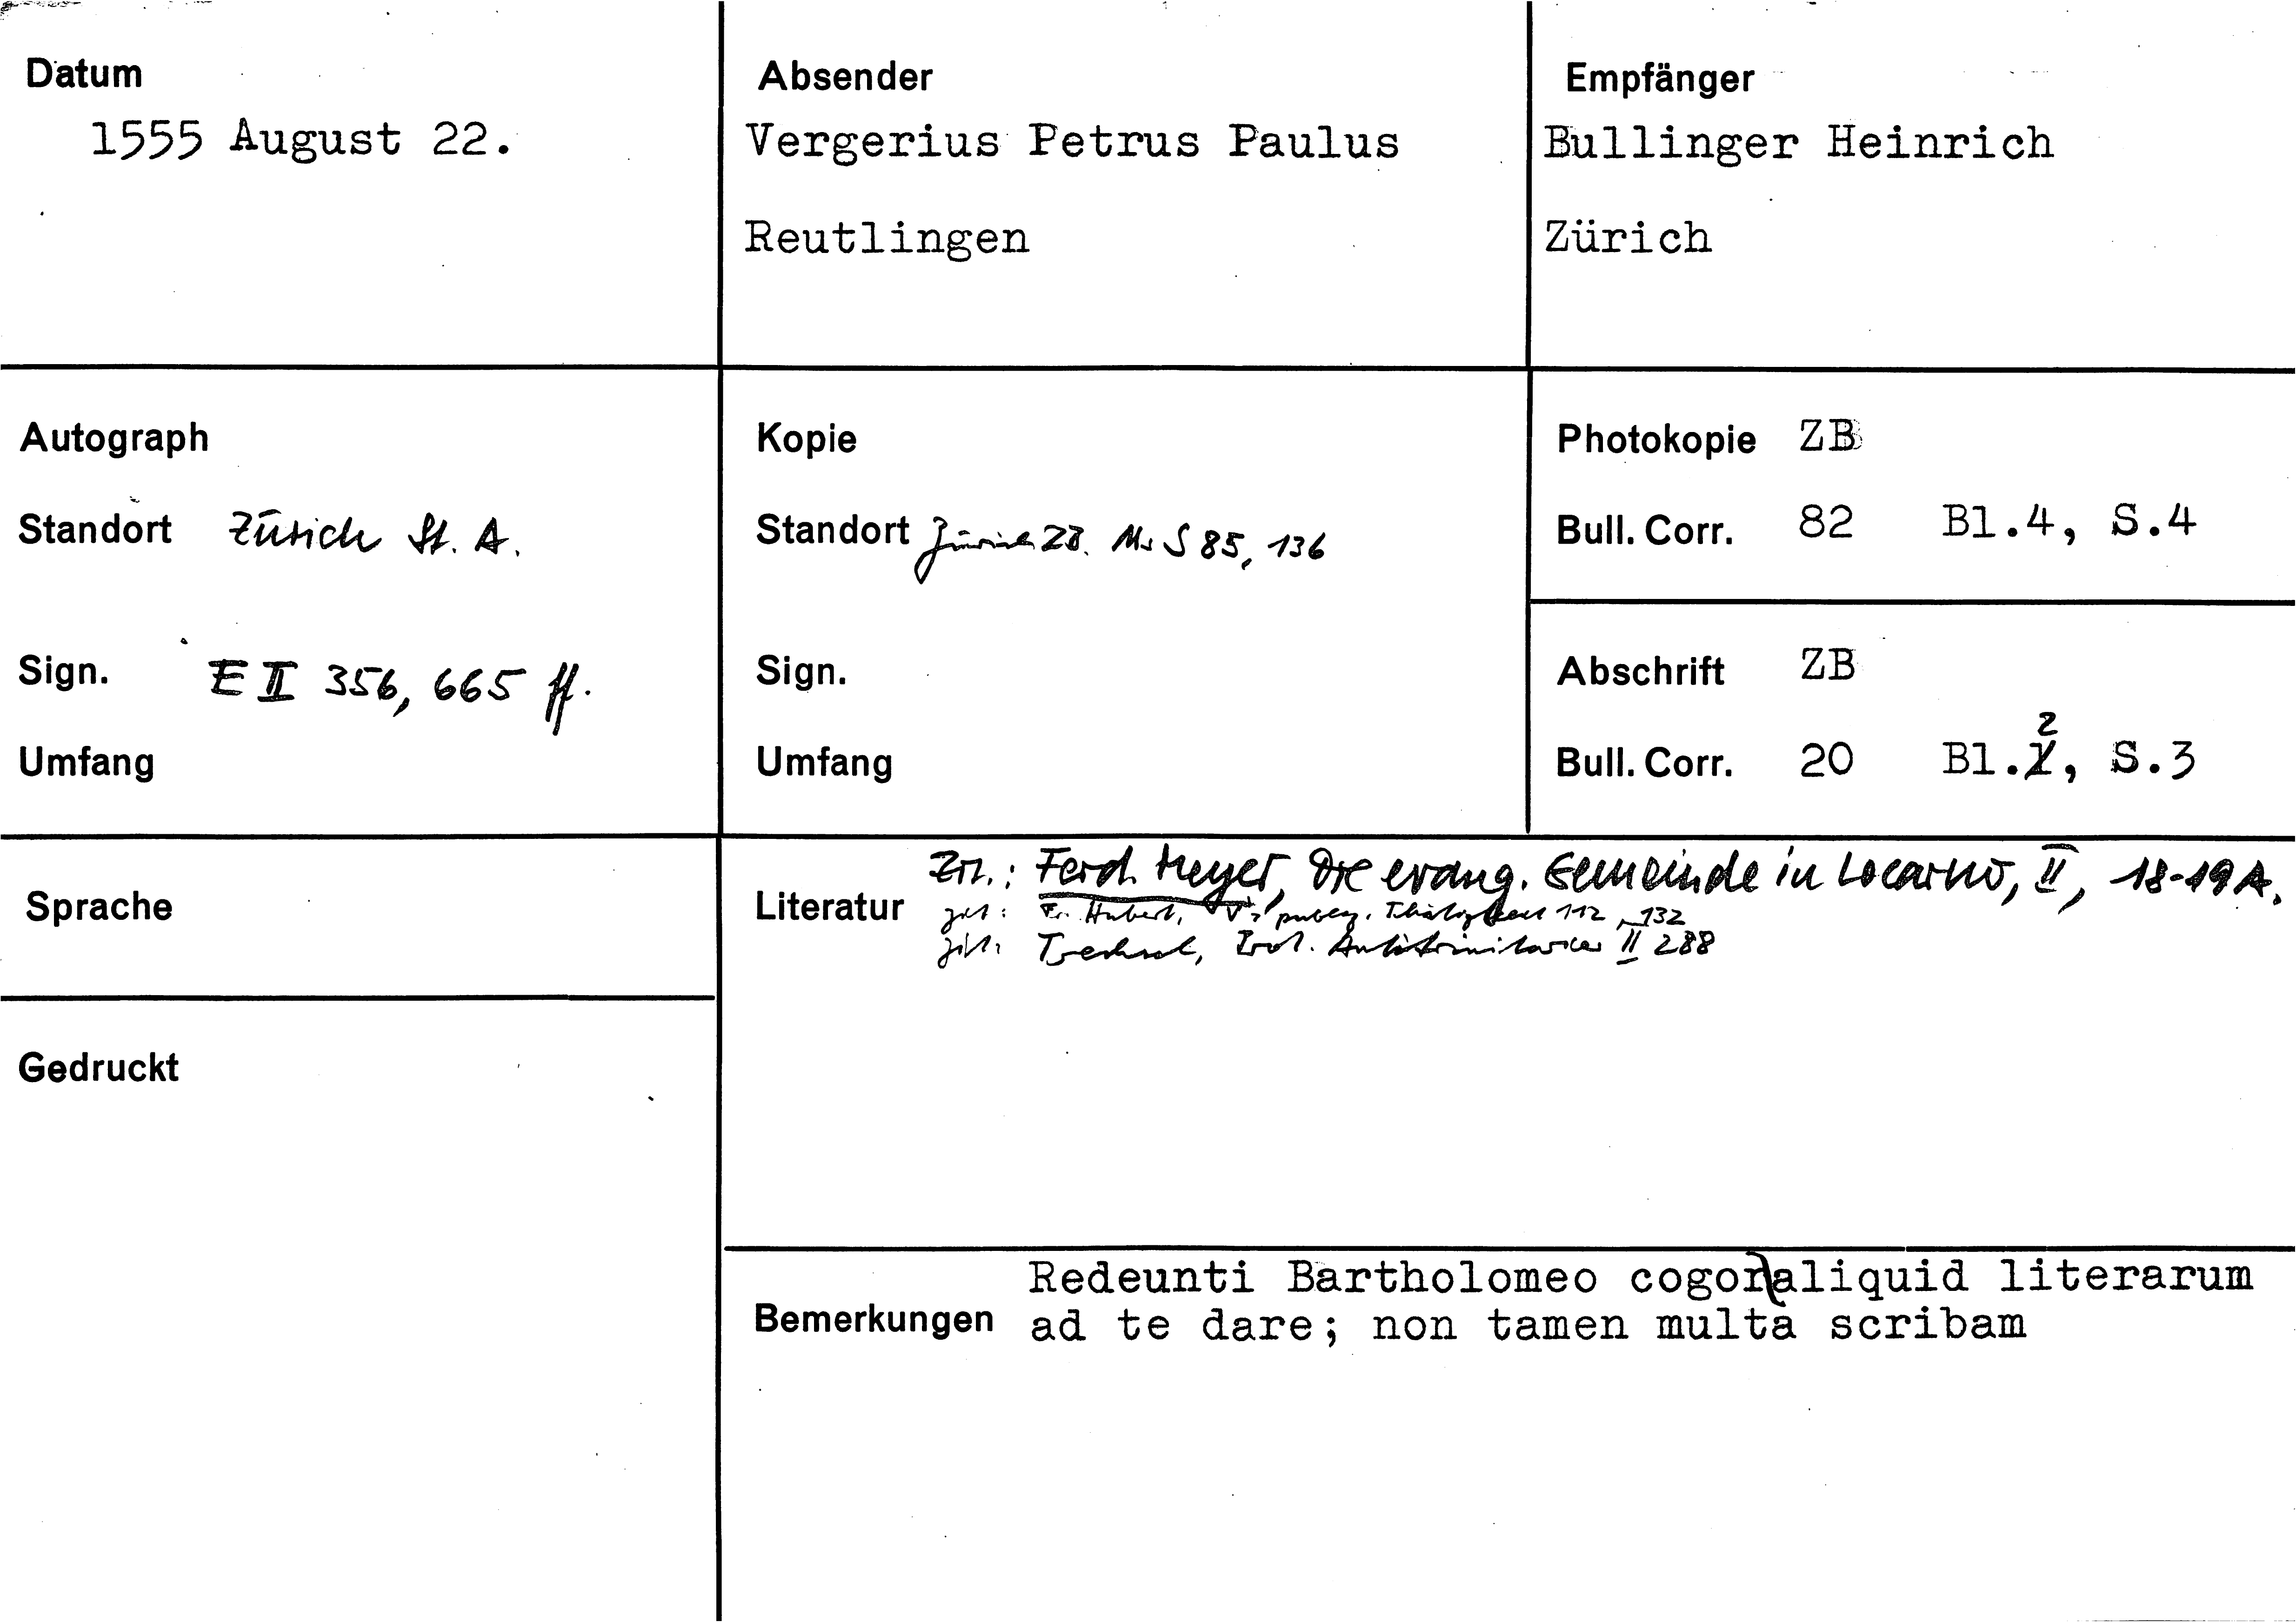 Datum
1555 August 22.
Absender
Vergerius Petrus Paulus
Reutlingen
Empfänger
Bullinger Heinrich
Zürich
Autograph
Standort Zürich St. A.
Sign. E II 356, 665 ff.
Umfang
Kopie
Standort Zürich ZB. Ms S 85, 136
Sign.
Umfang
Photokopie ZB
Bull. Corr. 82 Bl.4, S.4
Abschrift ZB
Bull. Corr. 20 Bl.2, S.3
Sprache
Gedruckt
Literatur
Zit.: Ferd. Meyer, Die evang. Gemeinde in Locarno, II, 18-19 A.
zit: Fr. Hubert, V's publiz. Thätigkeit 112, 132
zit: Trechsel, Prot. Antitrinitarier II 288
Bemerkungen
Redeunti Bartholomeo cogor aliquid literarum
ad te dare; non tamen multa scribam